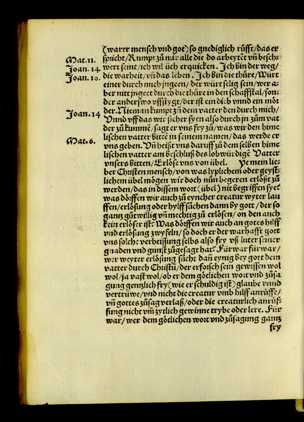 (warer mensch vnd got) so gnediglich rüfft/das er
Mat. 11. spricht/Kumpt zů mir alle die do arbeytēt vñ beschwert
Joan. 14. seint/ich wil üch erquicken. Ich bin der weg/
Joan. 10. die warheit/vñ das leben. Ich bin die thüre/Würt
einer durch mich yngeen/der würt selig sein/wer aber
nitt yngeet durch die thüre in den schaffstal/sonder
anderswo vffstygt/der ist ein dieb vnnd ein mörder.
Joan. 14 Nieman kumpt zů dem vatter den durch mich/
Vnnd vff das wir sicher syen also durch jn zum vatter
zů kummē/sagt er vns fry zů/was wir den himelischen
vatter bitten in seinem namen/das werde er
Mat. 6. vns geben. Vñ heißt vns daruff zů dem selben himelischen
vatter am beschluß des lobwürdigē Vatter
vnsers bitten/Erlöß vns von übel. Vernemen lieber
Christen mensch/von was lyplichem oder geystlichem
übel mögen wir doch nun begeren erlößt zů
werden/das in dissem wort (übel) nit begriffen sy?
was dörffen wir auch zů eyncher creatur wyter lauffen/
erlösung oder hylff sůchen dann by gott/der so
gantz gůtwillig vñ mechtig zů erlösen/on den auch
kein erlöser ist? Was dörffen wir auch an gottes hilff
vnd erlösung zwyflen/so doch er der warhafft gott
vns solche verheissung selbs also fry vß luter
gnaden vnd gunst zůgesagt hat. Für war für war/
wer weyter erlösung sůcht dañ eynig bey gott dem
vatter durch Christū/der erforsch sein gewissen wol
wol/ja vast wol/ob er dem götlichen wort vnd zůsagung
gentzlich fry (wie er schuldig ist) glaube vnnd
vertrüwe/vnd nit die creatur vmb hilff anrüffe/
vñ gottes zůsag verlaß/oder die creaturlich anrüffung
nicht vm̃ zytlich gewinne trybe oder lere. Für
war/wer dem götlichen wort vnd zůsagung gantz
fry